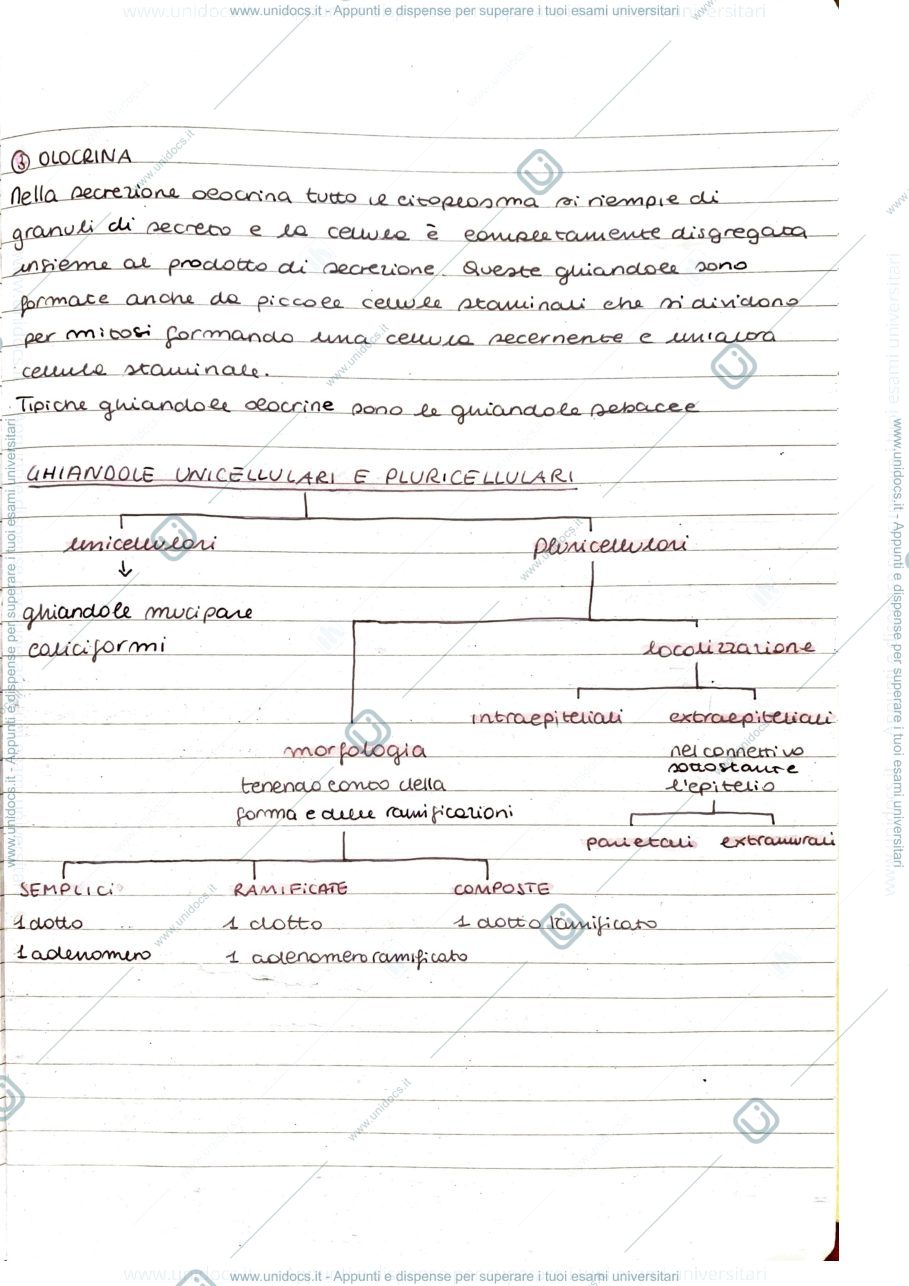 www.unidocs.it - Appunti e dispense per superare i tuoi esami universitari
③ OLOCRINA
Nella secrezione olocrina tutto il citoplasma si riempie di
granuli di secreto e la cellula è completamente disgregata
insieme al prodotto di secrezione. Queste ghiandole sono
formate anche da piccole cellule staminali che si dividono
per mitosi formando una cellula secernente e un'altra
cellula staminale.
Tipiche ghiandole olocrine sono le ghiandole sebacee
GHIANDOLE UNICELLULARI E PLURICELLULARI
unicellulari pluricellulari
↓
ghiandole mucipare
caliciformi
localizzazione
intraepiteliali extraepiteliali
morfologia
nel connettivo
sottostante
l'epitelio
tenendo conto della
forma e delle ramificazioni
parietali extramurali
SEMPLICI RAMIFICATE COMPOSTE
1 dotto 1 dotto 1 dotto ramificato
1 adenomero 1 adenomero ramificato
www.unidocs.it - Appunti e dispense per superare i tuoi esami universitari
www.unidocs.it - Appunti e dispense per superare i tuoi esami universitari
www.unidocs.it - Appunti e dispense per superare i tuoi esami universitari
www.unidocs.it
www.unidocs.it
www.unidocs.it
www.unidocs.it
www.unidocs.it